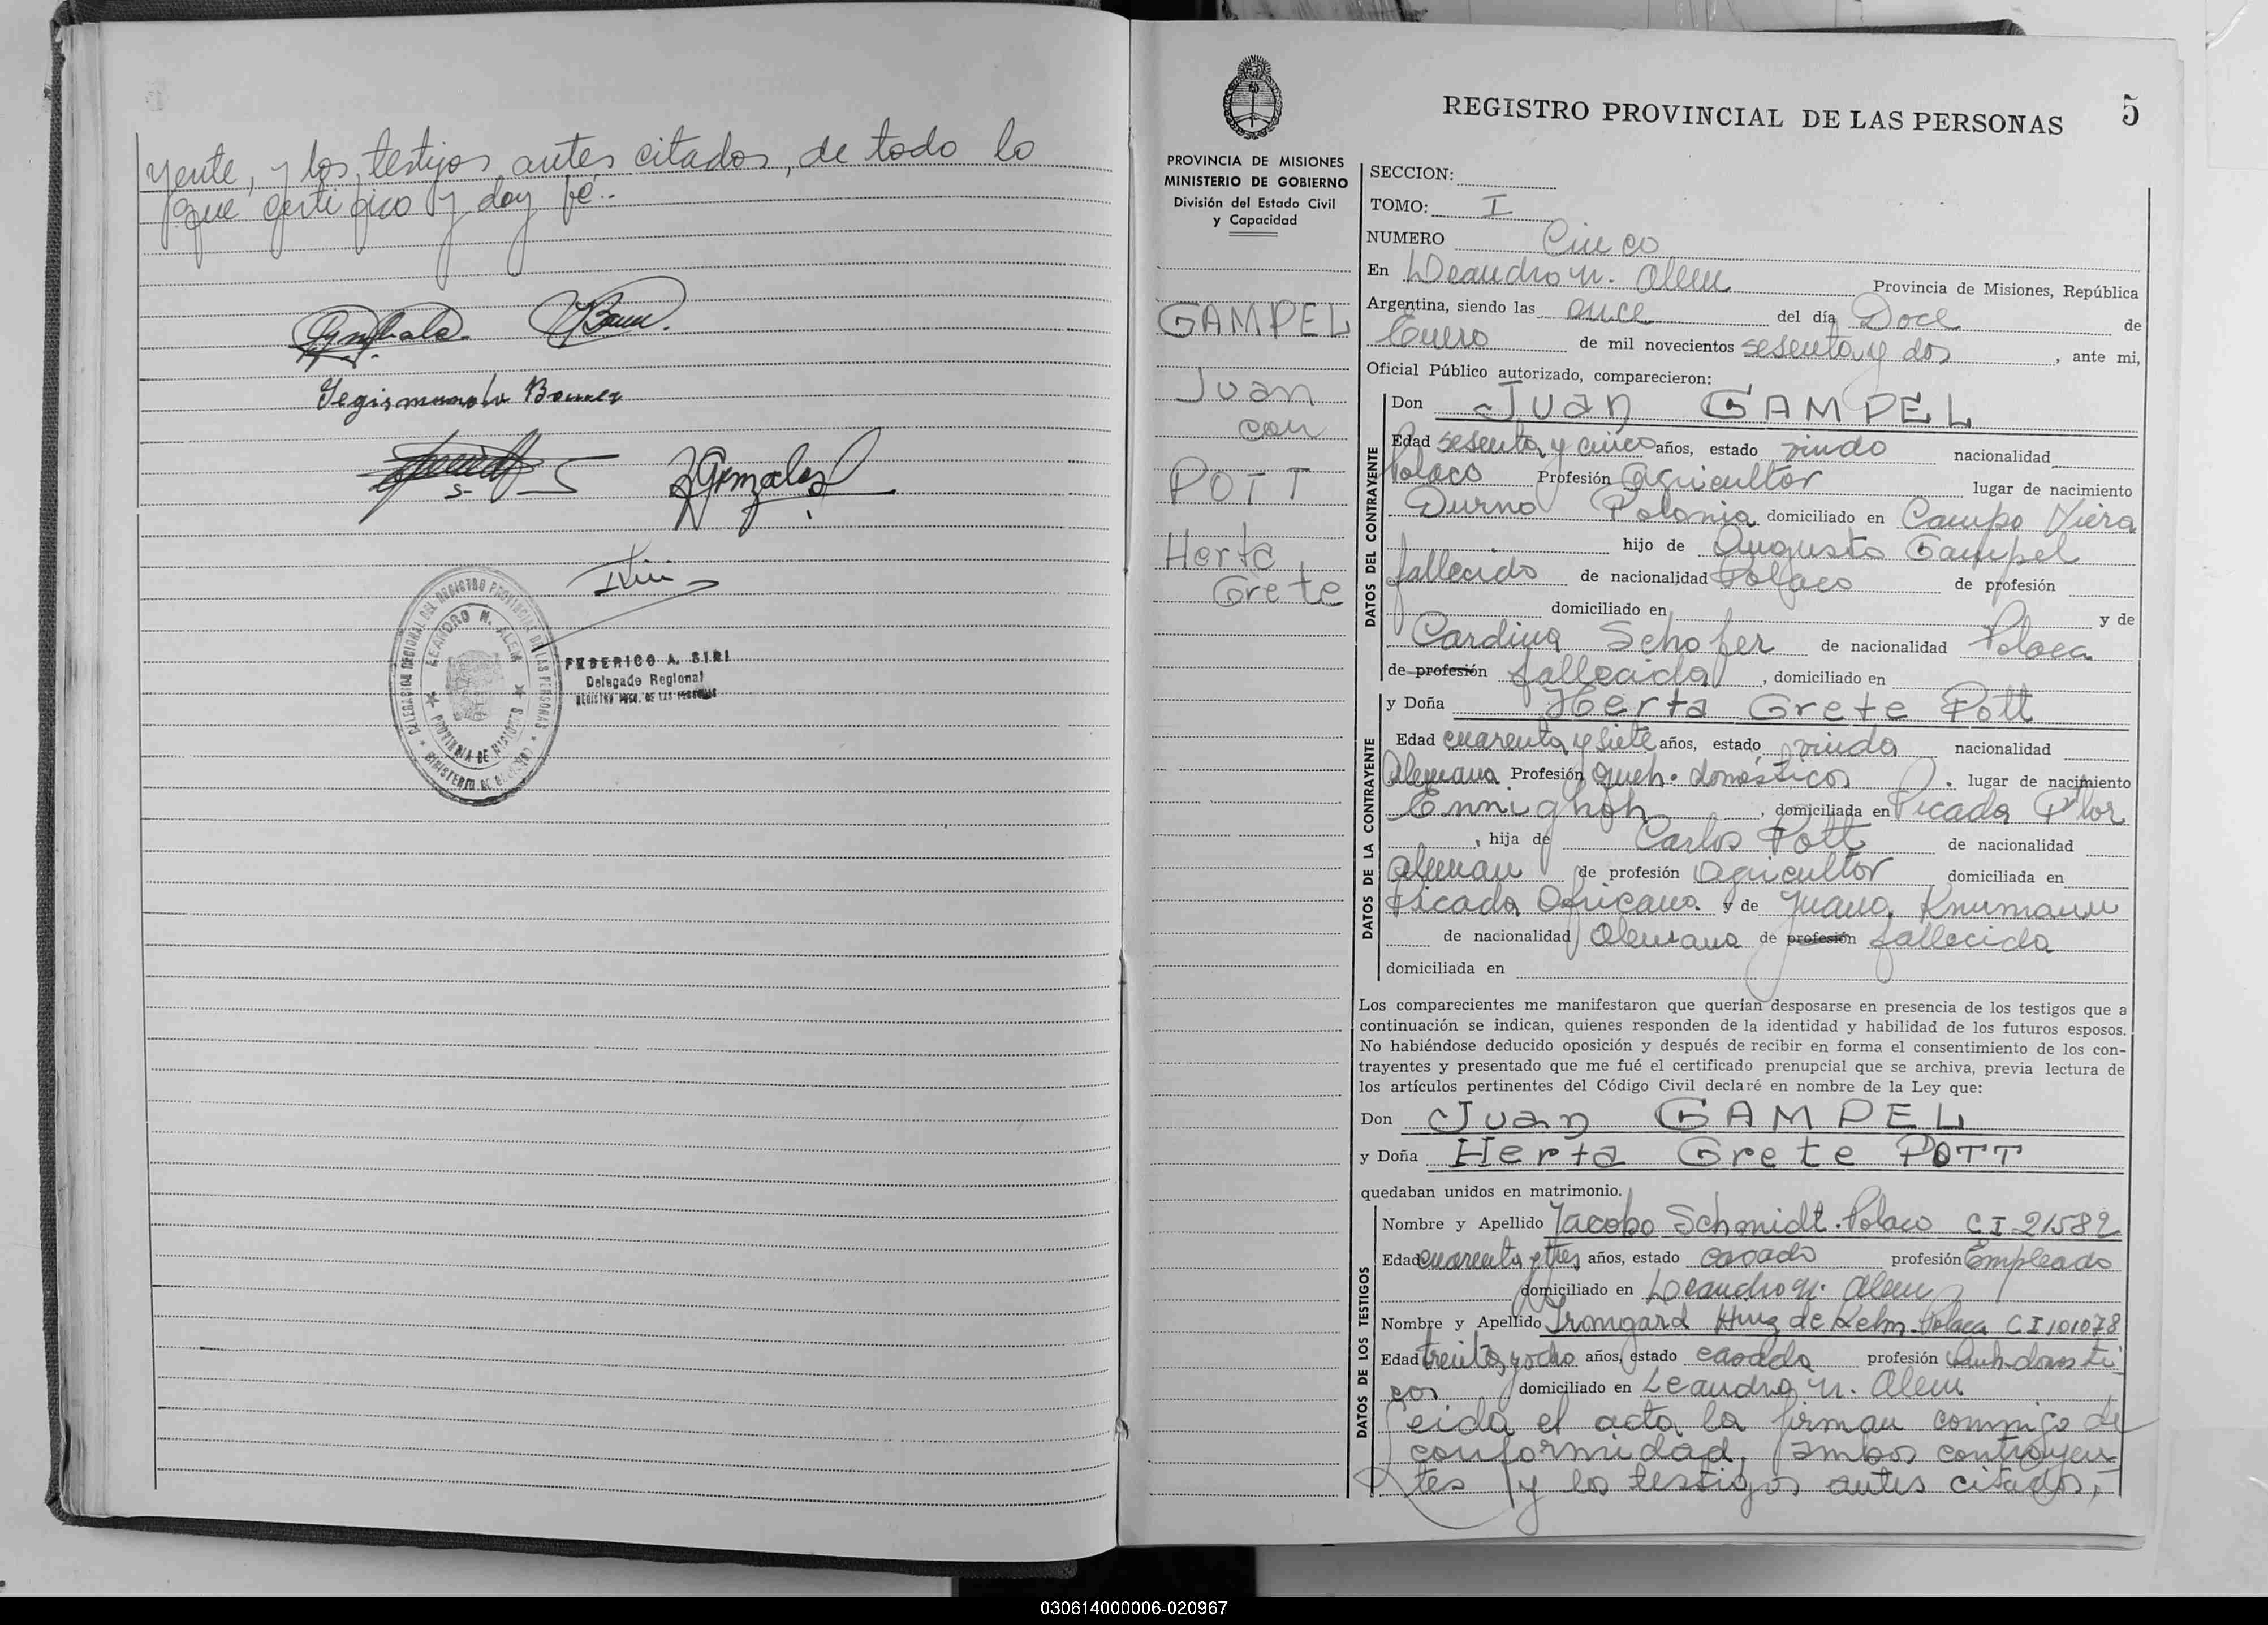 yente, y los testigos antes citados, de todo lo
que certifico y doy fé..
Segismundo
Gonzalez
DELEGACION REGIONAL DEL REGISTRO PROVINCIAL DE LAS PERSONAS
LEANDRO N. ALEM
PROVINCIA DE MISIONES
MINISTERIO DE GOBIERNO
FEDERICO A. SIRI
Delegado Regional
REGISTRO PROV. DE LAS PERSONAS
REGISTRO PROVINCIAL DE LAS PERSONAS 5
PROVINCIA DE MISIONES
MINISTERIO DE GOBIERNO
División del Estado Civil
y Capacidad
GAMPEL
Juan
con
POTT
Herta
Grete
SECCION:
TOMO: I
NUMERO Cinco
En Leandro N. Alem Provincia de Misiones, República
Argentina, siendo las once del día Doce de
Enero de mil novecientos sesenta y dos, ante mi,
Oficial Público autorizado, comparecieron:
DATOS DEL CONTRAYENTE
Don Juan GAMPEL
Edad sesenta y cinco años, estado viudo nacionalidad
Polaco Profesión agricultor lugar de nacimiento
Durno Polonia domiciliado en Campo Viera
hijo de Augusto Gampel
fallecido de nacionalidad Polaco de profesión
domiciliado en y de
Cardina Schofer de nacionalidad Polaca
de profesión fallecida, domiciliado en
DATOS DE LA CONTRAYENTE
y Doña Herta Grete Pott
Edad cuarenta y siete años, estado viuda nacionalidad
Alemana Profesión queh. domésticos. lugar de nacimiento
Ennighöh, domiciliada en Picada Flor
, hija de Carlos Pott de nacionalidad
aleman de profesión Agricultor domiciliada en
Picada Africana. y de Juana Knumann
de nacionalidad Alemana de profesión fallecida
domiciliada en
Los comparecientes me manifestaron que querían desposarse en presencia de los testigos que a
continuación se indican, quienes responden de la identidad y habilidad de los futuros esposos.
No habiéndose deducido oposición y después de recibir en forma el consentimiento de los con-
trayentes y presentado que me fué el certificado prenupcial que se archiva, previa lectura de
los artículos pertinentes del Código Civil declaré en nombre de la Ley que:
Don Juan GAMPEL
y Doña Herta Grete POTT
quedaban unidos en matrimonio.
DATOS DE LOS TESTIGOS
Nombre y Apellido Jacobo Schmidt. Polaco CI 21582
Edad cuarenta y tres años, estado casado profesión Empleado
domiciliado en Leandro N. Alem
Nombre y Apellido Irmgard Hinz de Kelm. Polaca CI 101078
Edad treinta y ocho años, estado casada profesión Queh. domésti
cos domiciliado en Leandro N. Alem
Leida el acta la firman conmigo de
conformidad, ambos contrayen
tes y los testigos antes citados,
030614000006-020967